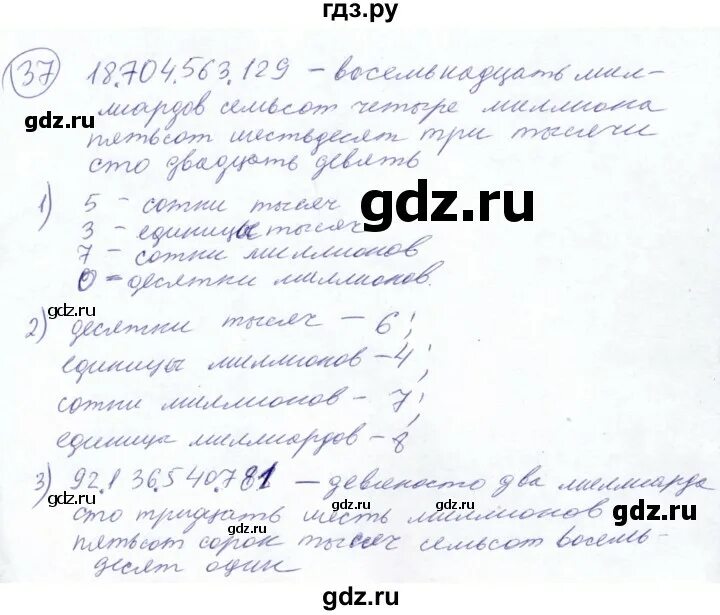 гдз.ру
37 18.704.563.129 – восемьнадцать мил-
лиардов семьсот четыре миллиона
пятьсот шестьдесят три тысячи
сто двадцать девять
gdz.ru
gdz.ru
1) 5 – сотки тысяч
3 – единицы тысяч
7 – сотки миллионов
0 – десятки миллионов.
gdz.ru
gdz.ru
gdz.ru
2) десятки тысяч – 6;
единицы миллионов – 4;
сотки миллионов – 7;
единицы миллиардов – 8
gdz.ru
gdz.ru
gdz.ru
3) 92.136.540.781 – девяносто два миллиарда
сто тридцать шесть миллионов
пятьсот сорок тысяч семьсот восемь-
десят один
gdz.ru
gdz.ru
gdz.ru
gdz.ru
gdz.ru